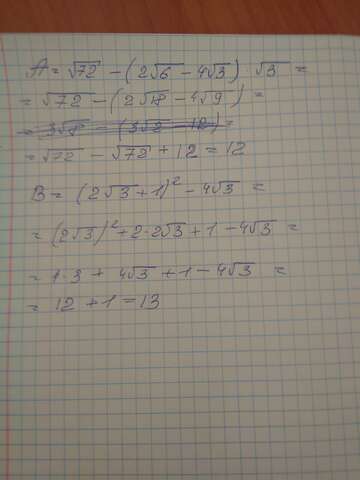 A = √72 − (2√6 − 4√3) √3 =
= √72 − (2√18 − 4√9) =
= 3√8 − (3√2 − 12) =
= √72 − √72 + 12 = 12
B = (2√3 + 1)² − 4√3 =
= (2√3)² + 2·2√3 + 1 − 4√3 =
= 4·3 + 4√3 + 1 − 4√3 =
= 12 + 1 = 13